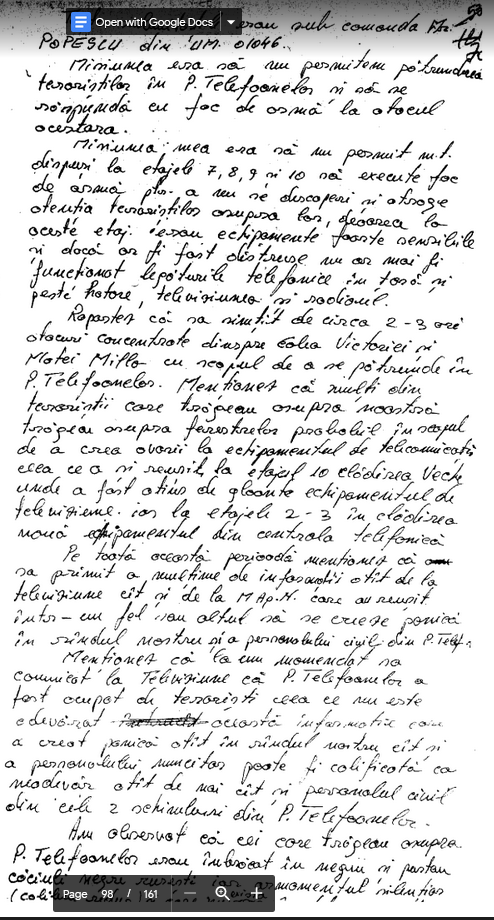 Open with Google Docs
erau sub comanda Mr.
POPESCU din UM. 01046.
Misiunea era să nu permitem pătrunderea
teroriștilor în P. Telefoanelor și să se
răspundă cu foc de armă la atacul
acestora.
Misiunea mea era să nu permit m.t.
dispuși la etajele 7, 8, 9 și 10 să execute foc
de armă ptr. a nu se descoperi și atrage
atenția teroriștilor asupra lor, deoarece la
aceste etaj. erau echipamente foarte sensibile
și dacă ar fi fost distruse nu ar mai fi
funcționat legăturile telefonice în țară și
peste hotare, televiziunea și radioul.
Raportez că sa simțit de circa 2-3 ori
atacuri concentrate dinspre Calea Victoriei și
Matei Millo cu scopul de a se pătrunde în
P. Telefoanelor. Menționez că mulți din
teroriștii care trăgeau asupra noastră
trăgeau asupra ferestrelor probabil în scopul
de a crea avarii la echipamentul de telecomunicații
ceea ce a și reușit, la etajul 10 clădirea Veche
unde a fost atins de gloanțe echipamentul de
televiziune. iar la etajele 2-3 în clădirea
nouă echipamentul din centrala telefonică
Pe toată această perioadă menționez că
sa primit a mulțime de informații atît de la
televiziune cît și de la M.Ap.N. care au reușit
într-un fel sau altul să se creeze panică
în rîndul nostru și a personalului civil din P. Telef.
Menționez că la un momendat sa
comunicat la Televiziune că P. Telefoanelor a
fost ocupat de teroriști ceea ce nu este
adevărat această informație care
a creat panică atît în rîndul nostru cît și
a personalului muncitor poate fi calificată ca
neadevăr atît de noi cît și personalul civil
din cele 2 schimburi din P. Telefoanelor.
Am observat că cei care trăgeau asupra
P. Telefoanelor erau îmbrăcat în negru și purtau
căciuli negre rusești iar armamentul silențios
Page 98 / 161